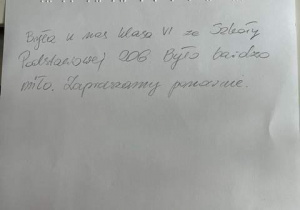 Była u nas klasa VI ze Szkoły
Podstawowej 206 Było bardzo
miło. Zapraszamy ponownie.